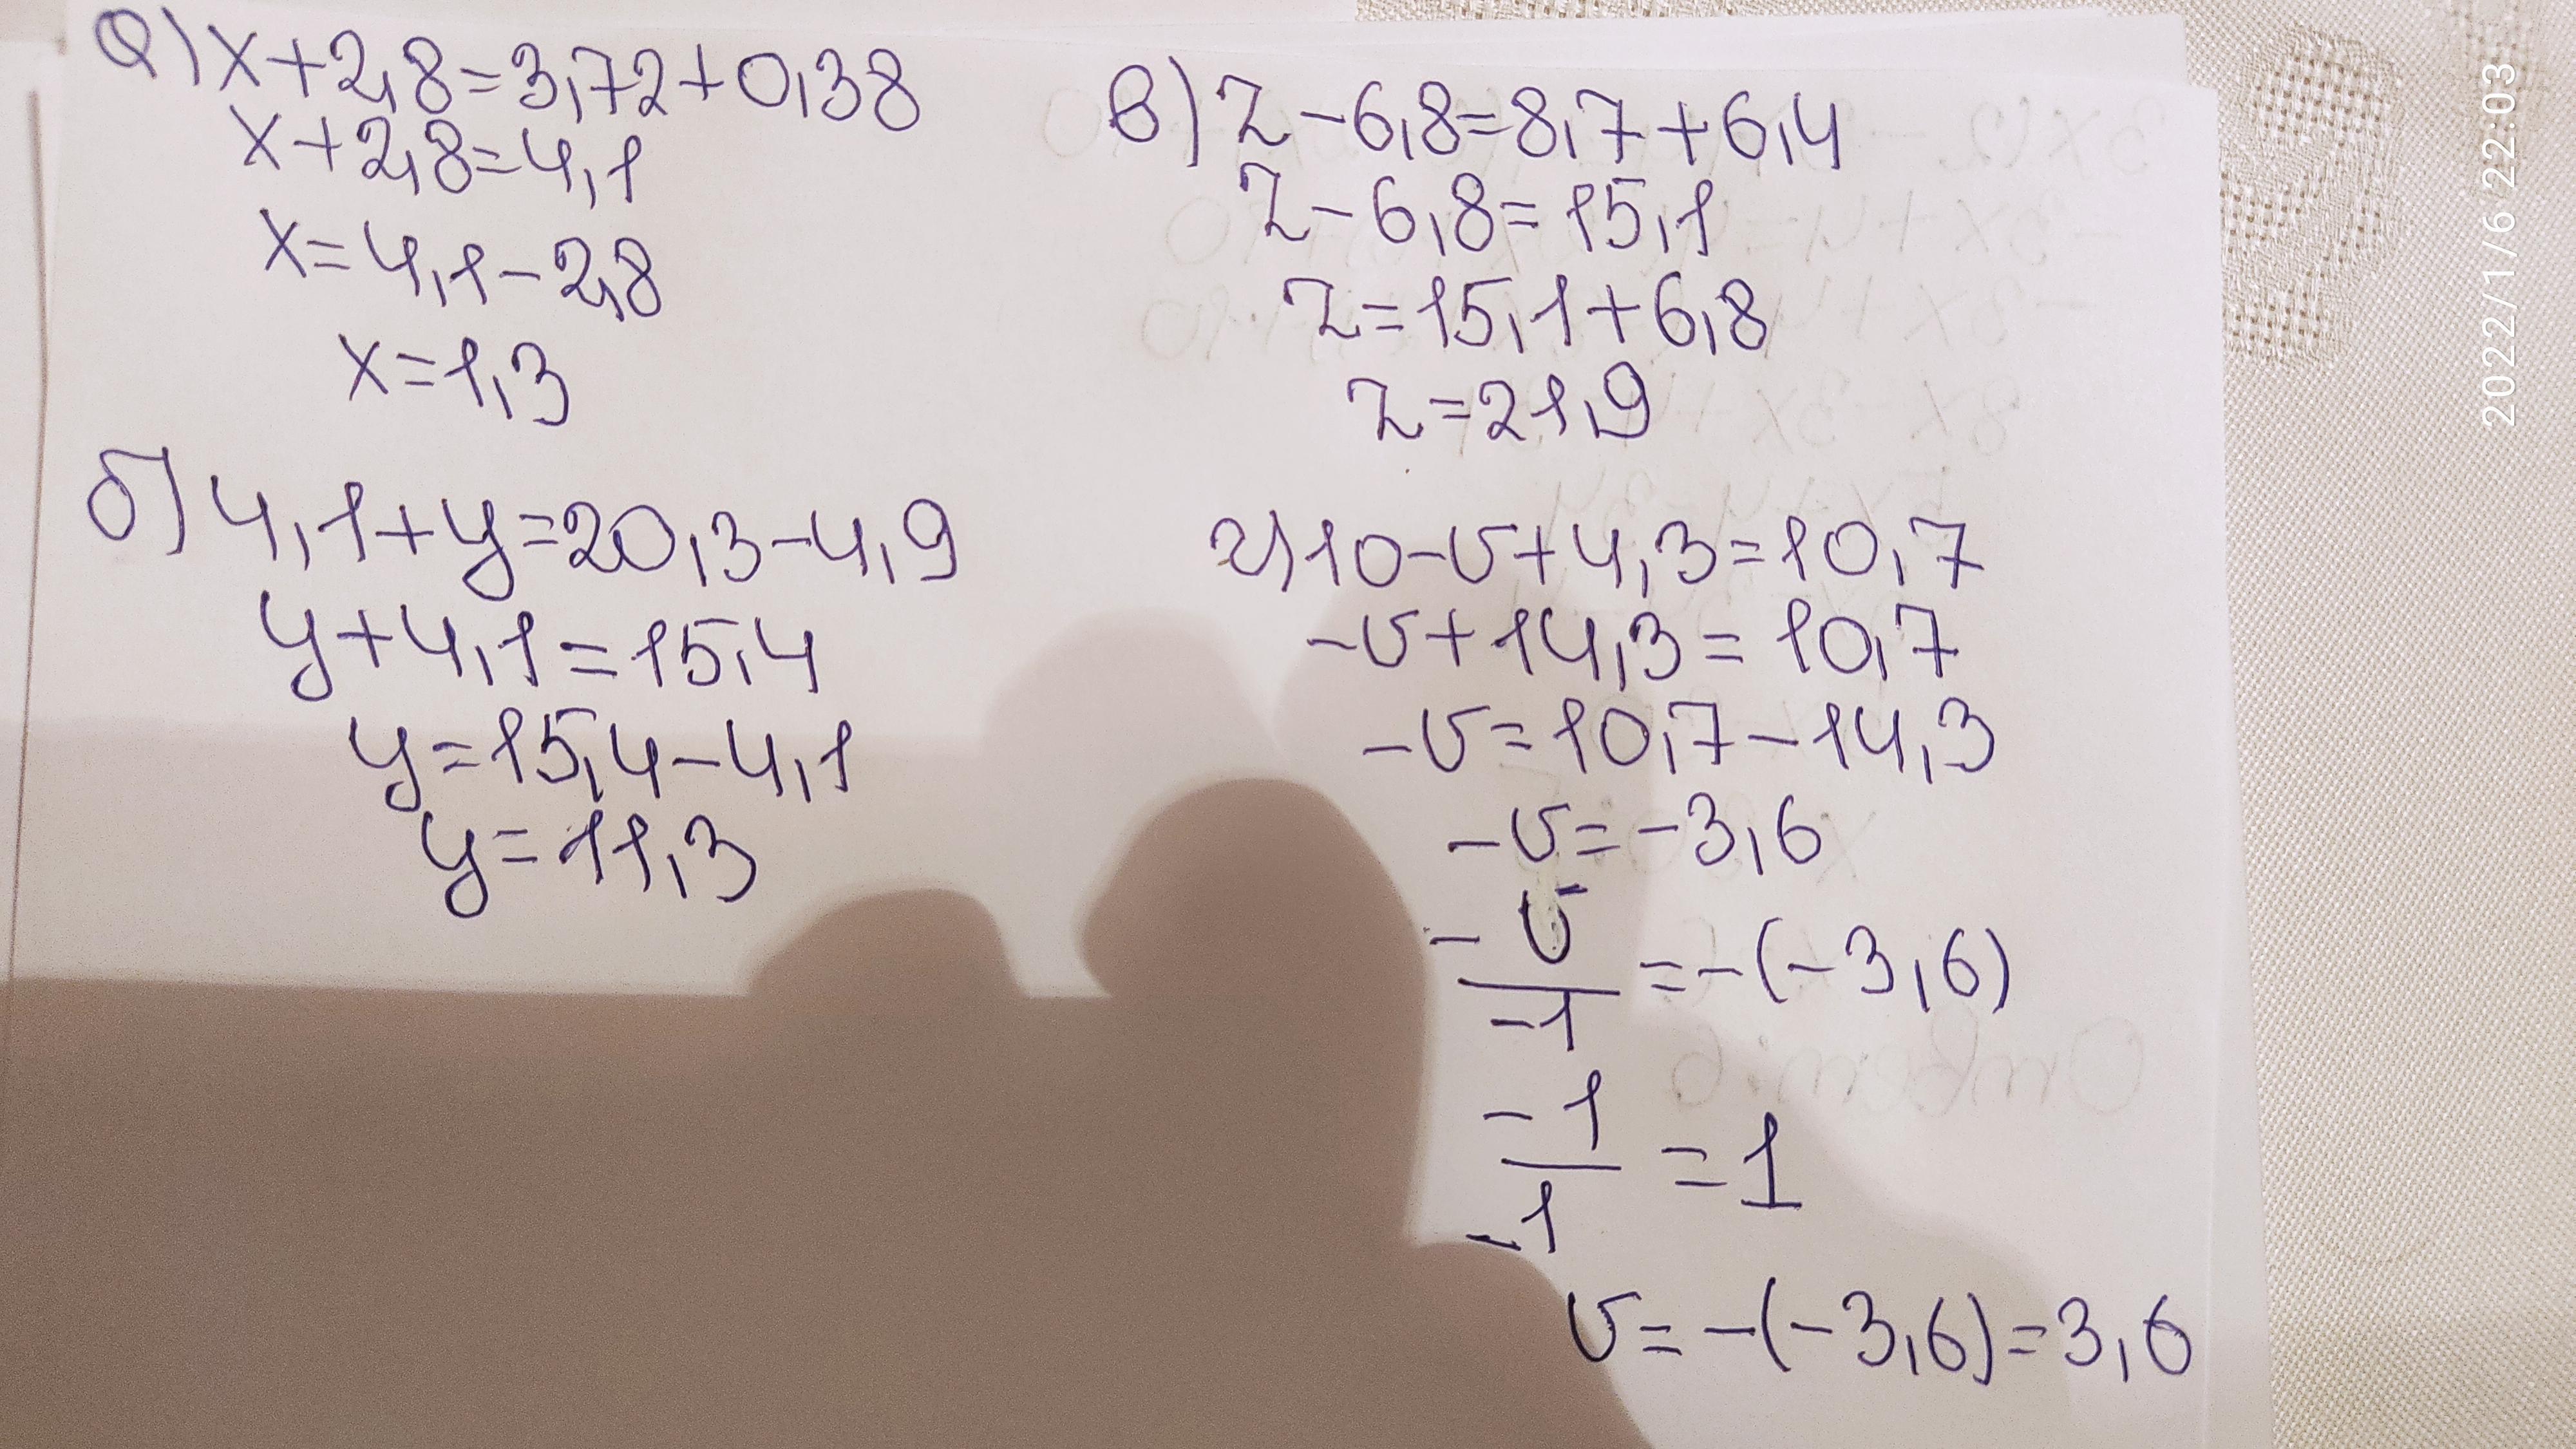 а) x+2,8=3,72+0,38
x+2,8=4,1
x=4,1-2,8
x=1,3
б) 4,1+y=20,3-4,9
y+4,1=15,4
y=15,4-4,1
y=11,3
в) z-6,8=8,7+6,4
z-6,8=15,1
z=15,1+6,8
z=21,9
г) 10-v+4,3=10,7
-v+14,3=10,7
-v=10,7-14,3
-v=-3,6
-v/-1=-(-3,6)
-1/-1=1
v=-(-3,6)=3,6
2022/1/6 22:03